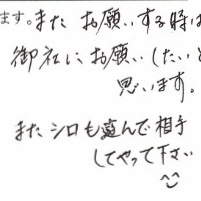 ます。また お願いする時は
御社に、お願いしたいと
思います。
また シロも遊んで相手
してやって下さい
^^